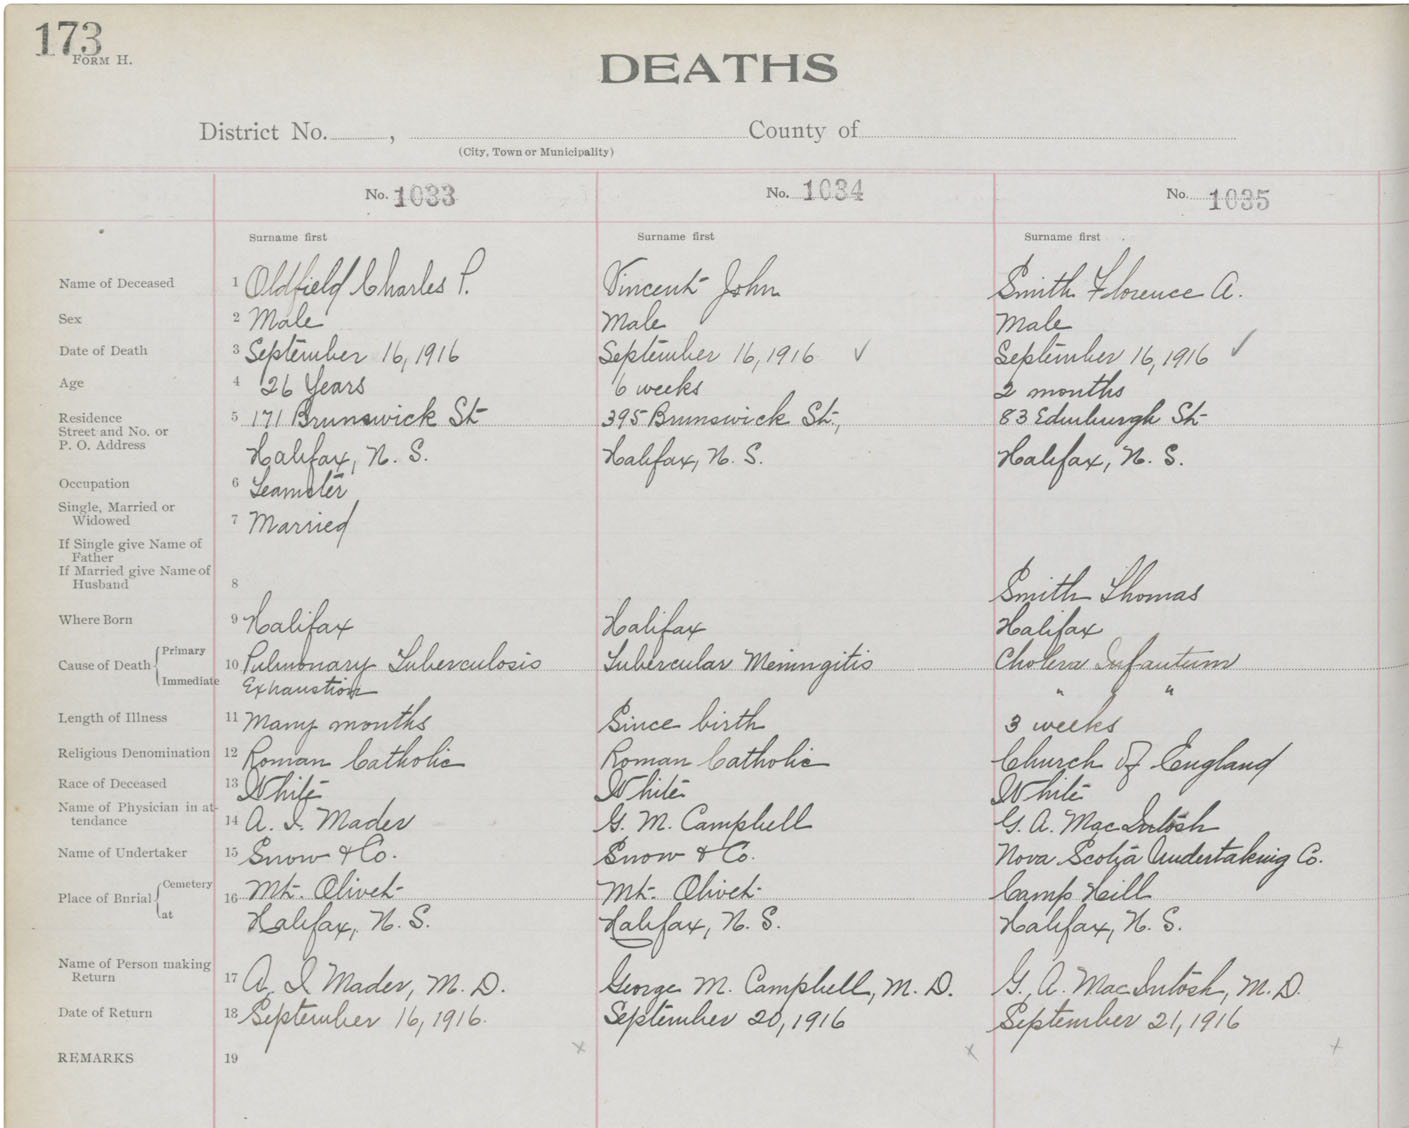 173
FORM H.
DEATHS
District No. , County of
(City, Town or Municipality)
No. 1033 No. 1034 No. 1035
Surname first Surname first Surname first
Name of Deceased 1 Oldfield Charles P. Vincent John Smith Florence A.
Sex 2 Male Male Male
Date of Death 3 September 16, 1916 September 16, 1916 ✓ September 16, 1916 ✓
Age 4 26 Years 6 weeks 2 months
Residence 5 171 Brunswick St 395 Brunswick St., 83 Edinburgh St
Street and No. or
P. O. Address Halifax, N. S. Halifax, N. S. Halifax, N. S.
Occupation 6 Teamster
Single, Married or
Widowed 7 Married
If Single give Name of
Father
If Married give Name of
Husband 8 Smith Thomas
Where Born 9 Halifax Halifax Halifax
Cause of Death { Primary 10 Pulmonary Tuberculosis Tubercular Meningitis Cholera Infantum
Immediate Exhaustion " " "
Length of Illness 11 Many months Since birth 3 weeks
Religious Denomination 12 Roman Catholic Roman Catholic Church of England
Race of Deceased 13 White White White
Name of Physician in at-
tendance 14 A. I. Mader G. M. Campbell G. A. MacIntosh
Name of Undertaker 15 Snow & Co. Snow & Co. Nova Scotia Undertaking Co.
Place of Burial { Cemetery 16 Mt. Olivet Mt. Olivet Camp Hill
at Halifax, N. S. Halifax, N. S. Halifax, N. S.
Name of Person making
Return 17 A. I Mader, M. D. George M. Campbell, M. D. G. A. MacIntosh, M. D.
Date of Return 18 September 16, 1916. September 20, 1916 September 21, 1916
REMARKS 19 x x x